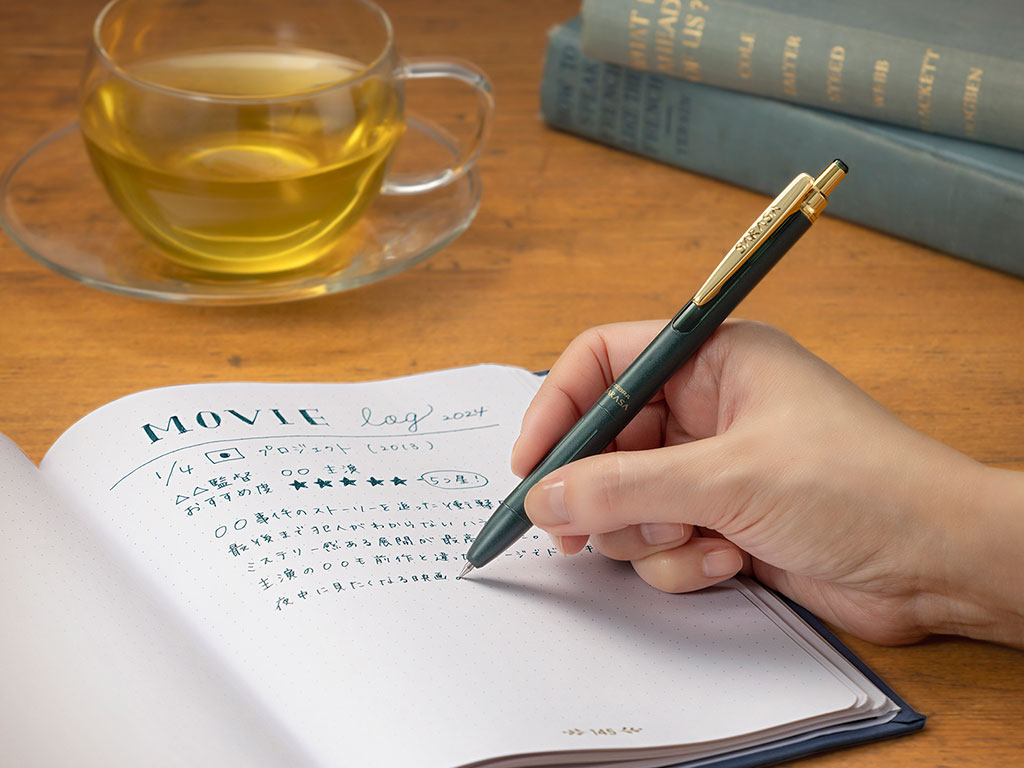 WHAT
AHEAD
OF US?
COLE
BAXTER
STEED
WEBB
HACKETT
HOGBEN
HOW TO
SPEAK
FRENCH
LIKE THE
FRENCH
SARASA
ZEBRA
SARASA
MOVIE log 2024
1/4 プロジェクト (2013)
△△監督 〇〇 主演
おすすめ度 ★★★★★ 5つ星!
〇〇事件のストーリーを追った衝撃
最後まで犯人がわからない
ミステリー感ある展開が最高
主演の〇〇も前作と違
夜中に見たくなる映画
145